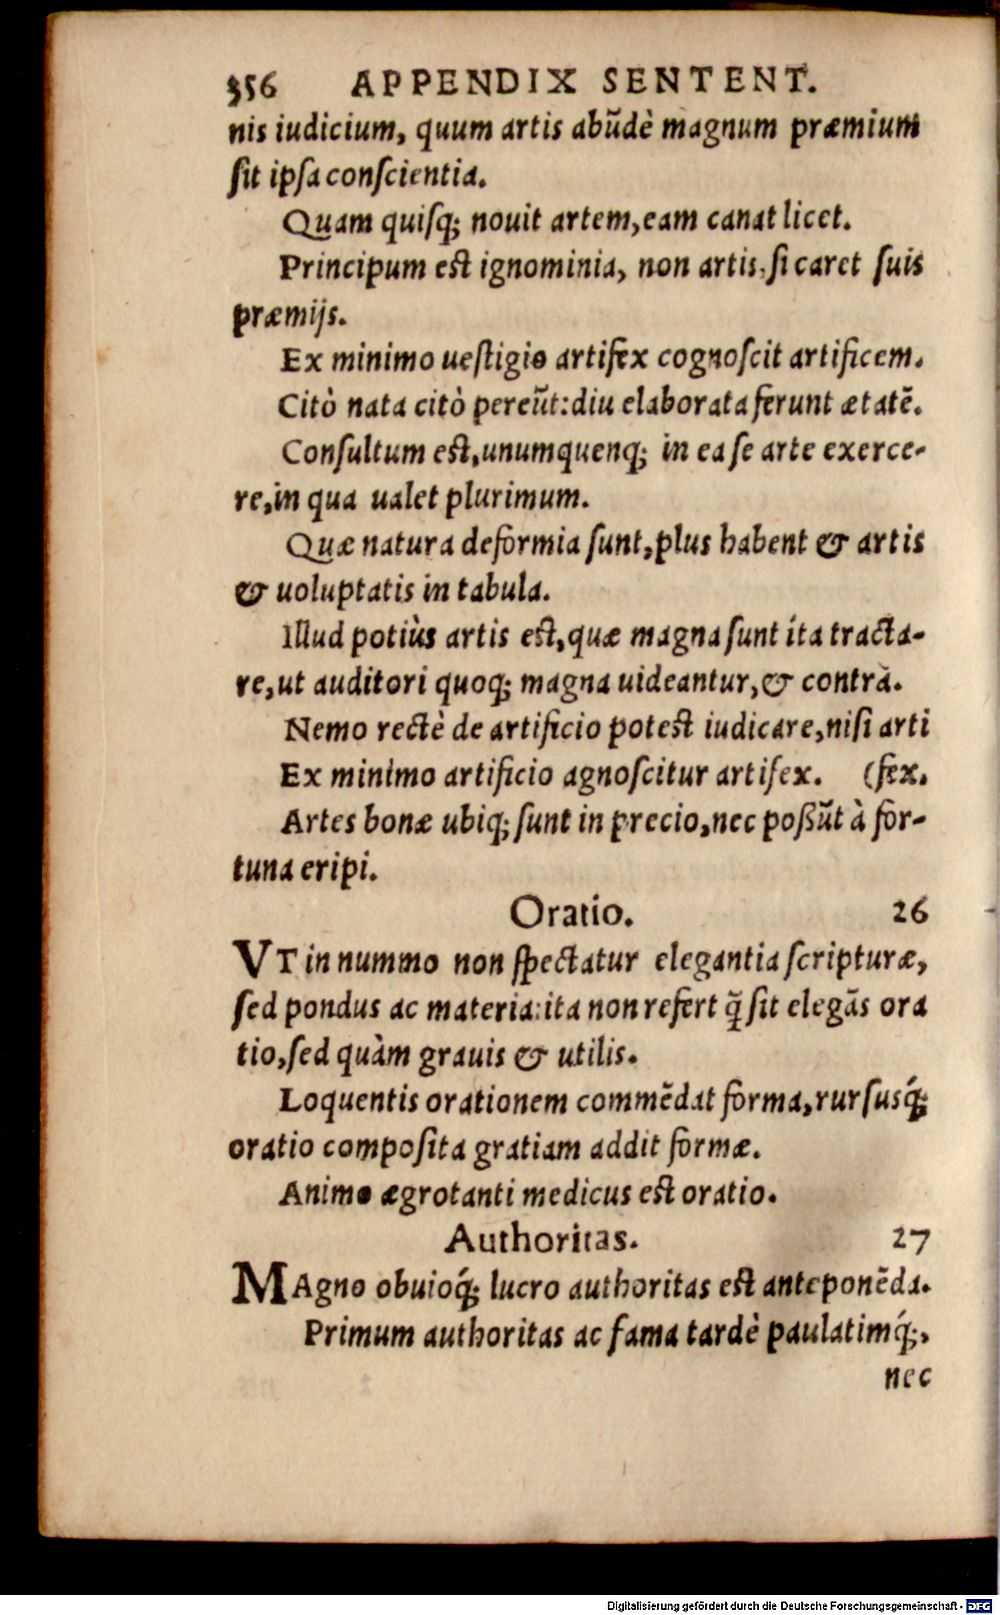 356 APPENDIX SENTENT.
nis iudicium, quum artis abũdè magnum præmium
ſit ipſa conſcientia.
Quam quiſq; nouit artem, eam canat licet.
Principum eſt ignominia, non artis, ſi caret ſuis
præmijs.
Ex minimo ueſtigio artifex cognoſcit artificem.
Citò nata citò pereũt: diu elaborata ferunt ætatẽ.
Conſultum eſt, unumquenq; in ea ſe arte exerce-
re, in qua ualet plurimum.
Quæ natura deformia ſunt, plus habent & artis
& uoluptatis in tabula.
Illud potiùs artis eſt, quæ magna ſunt ita tracta-
re, ut auditori quoq; magna uideantur, & contrà.
Nemo rectè de artificio poteſt iudicare, niſi arti
Ex minimo artificio agnoſcitur artifex. (fex.
Artes bonæ ubiq; ſunt in precio, nec poßũt à for-
tuna eripi.
Oratio. 26
VT in nummo non ſpectatur elegantia ſcripturæ,
ſed pondus ac materia: ita non refert q̃ ſit elegãs ora
tio, ſed quàm grauis & utilis.
Loquentis orationem commẽdat forma, rurſusq́;
oratio compoſita gratiam addit formæ.
Animo ægrotanti medicus eſt oratio.
Authoritas. 27
MAgno obuioq́; lucro authoritas eſt anteponẽda.
Primum authoritas ac fama tardè paulatimq́;,
nec
Digitalisierung gefördert durch die Deutsche Forschungsgemeinschaft - DFG